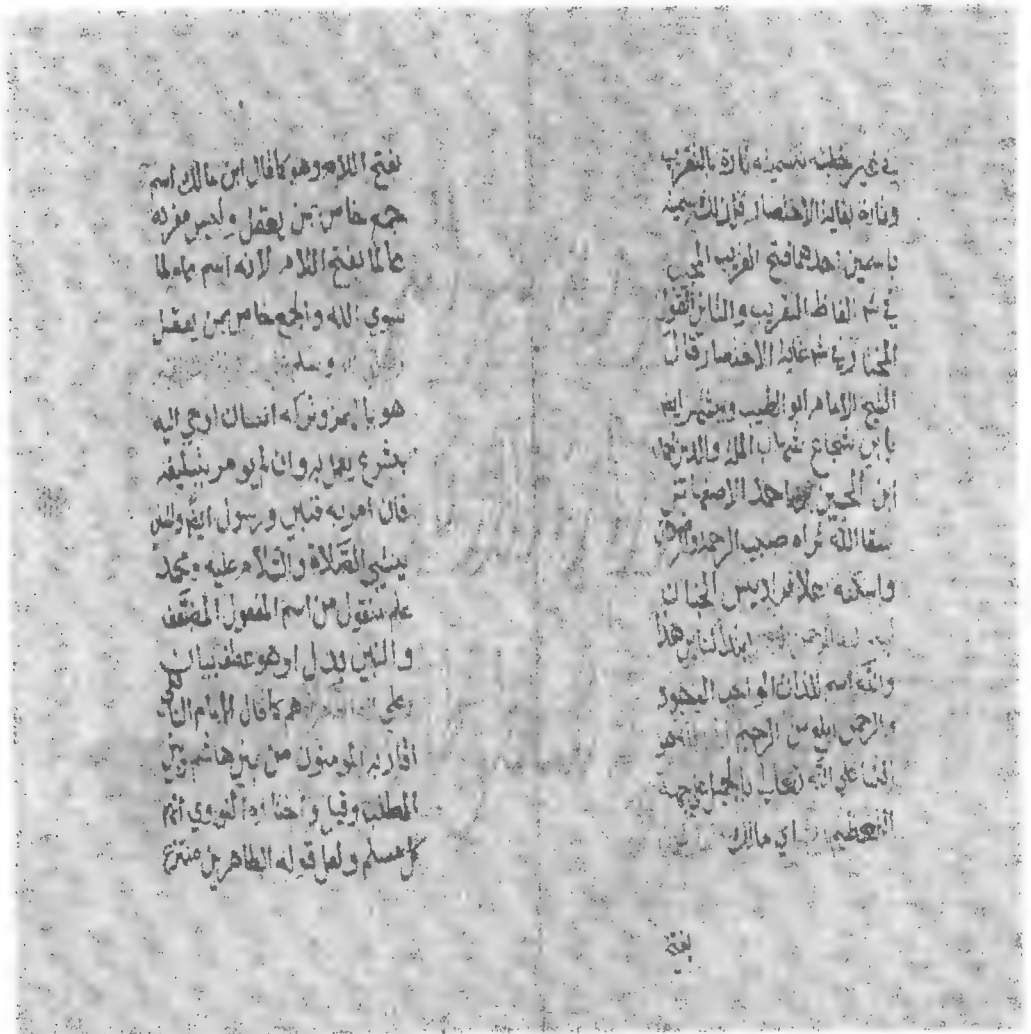 في غير خطبه تسميته تارة بالتقريب
وتارة بغاية الاختصار فلذلك سميته
باسمين احدهما فتح القريب المجيب
في شرح الفاظ التقريب والثاني القول
المختار في شرح غاية الاختصار قال
الشيخ الامام ابو الطيب ويشتهر ايضا
بابي شجاع شهاب الملة والدين
ابن الحسين بن احمد الاصفهاني
سقا الله ثراه صبيب الرحمة والرضوان
واسكنه اعلا فراديس الجنان
الرحمن هذا
والله اسم للذات الواجب الوجود
والرحمن ابلغ من الرحيم هو
الثنا على الله تعالى بالجميل على جهة
التعظيم اي مالك
بفتح
بفتح اللام وهو كما قال ابن مالك اسم
جمع خاص بمن يعقل وليس مفرده
عالما بفتح اللام لانه اسم عام لما
سوي الله والجمع خاص بمن يعقل
هو بالهمز وتركه انسان اوحي اليه
بشرع يعمل به وان لم يومر بتبليغه
فان امر به فنبي ورسول ايضا والمعني
ينشي الصلاة والسلام عليه ومحمد
علم منقول من اسم المفعول المضعف
والنبي بدل او عطف بيان
وعلي هم كما قال الامام الشافعي
اقاربه المومنون من بني هاشم وبني
المطلب وقيل واختاره النووي انهم
كل مسلم ولعل قوله الطاهرين منتزع